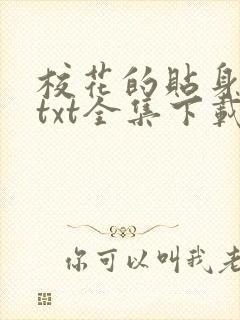 校花的貼身
txt全集下載
你可以叫我老